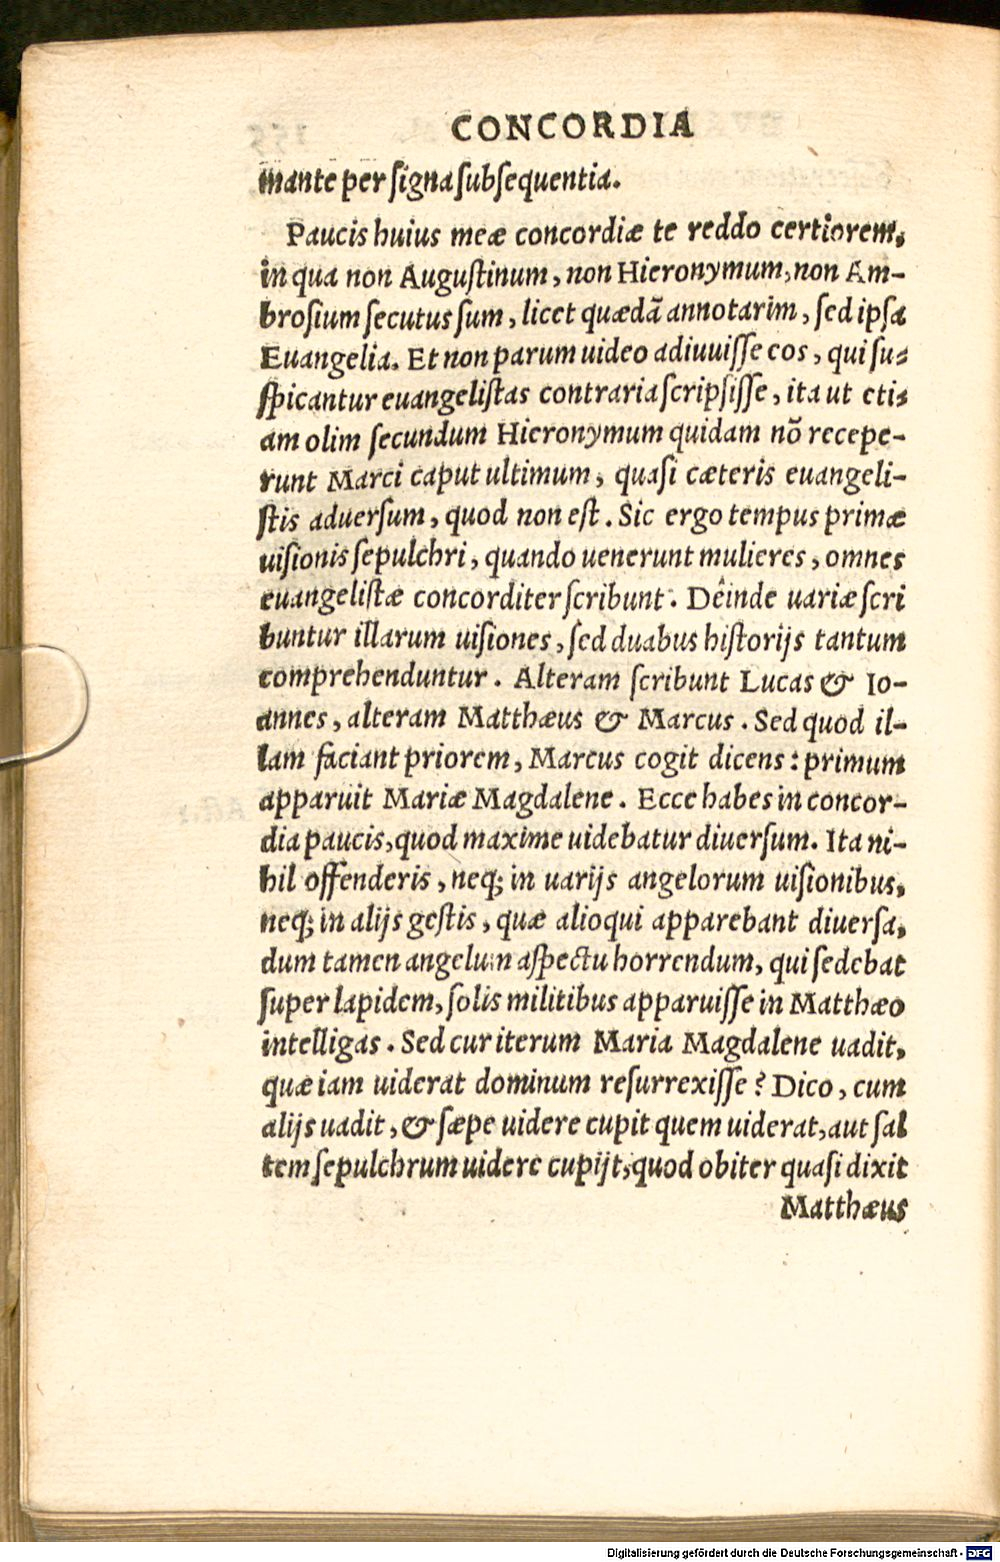 CONCORDIA
mante per ſigna ſubſequentia.
Paucis huius meæ concordiæ te reddo certiorem,
in qua non Auguſtinum, non Hieronymum, non Am-
broſium ſecutus ſum, licet quædã annotarim, ſed ipſa
Euangelia. Et non parum uideo adiuuiſſe eos, qui ſu-
ſpicantur euangeliſtas contraria ſcripſiſſe, ita ut eti-
am olim ſecundum Hieronymum quidam nõ recepe-
runt Marci caput ultimum, quaſi cæteris euangeli-
ſtis aduerſum, quod non eſt. Sic ergo tempus primæ
uiſionis ſepulchri, quando uenerunt mulieres, omnes
euangeliſtæ concorditer ſcribunt. Dêinde uariæ ſcri
buntur illarum uiſiones, ſed duabus hiſtorijs tantum
comprehenduntur. Alteram ſcribunt Lucas & Io-
annes, alteram Matthæus & Marcus. Sed quod il-
lam faciant priorem, Marcus cogit dicens: primum
apparuit Mariæ Magdalene. Ecce habes in concor-
dia paucis, quod maxime uidebatur diuerſum. Ita ni-
hil offenderis, neq; in uarijs angelorum uiſionibus,
neq; in alijs geſtis, quæ alioqui apparebant diuerſa,
dum tamen angelum aſpectu horrendum, qui ſedebat
ſuper lapidem, ſolis militibus apparuiſſe in Matthæo
intelligas. Sed cur iterum Maria Magdalene uadit,
quæ iam uiderat dominum reſurrexiſſe? Dico, cum
alijs uadit, & ſæpe uidere cupit quem uiderat, aut ſal
tem ſepulchrum uidere cupijt, quod obiter quaſi dixit
Matthæus
Digitalisierung gefördert durch die Deutsche Forschungsgemeinschaft - DFG